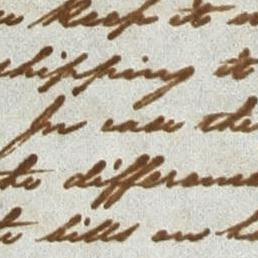 keep it
shipping it
In case the
the difference
bills on